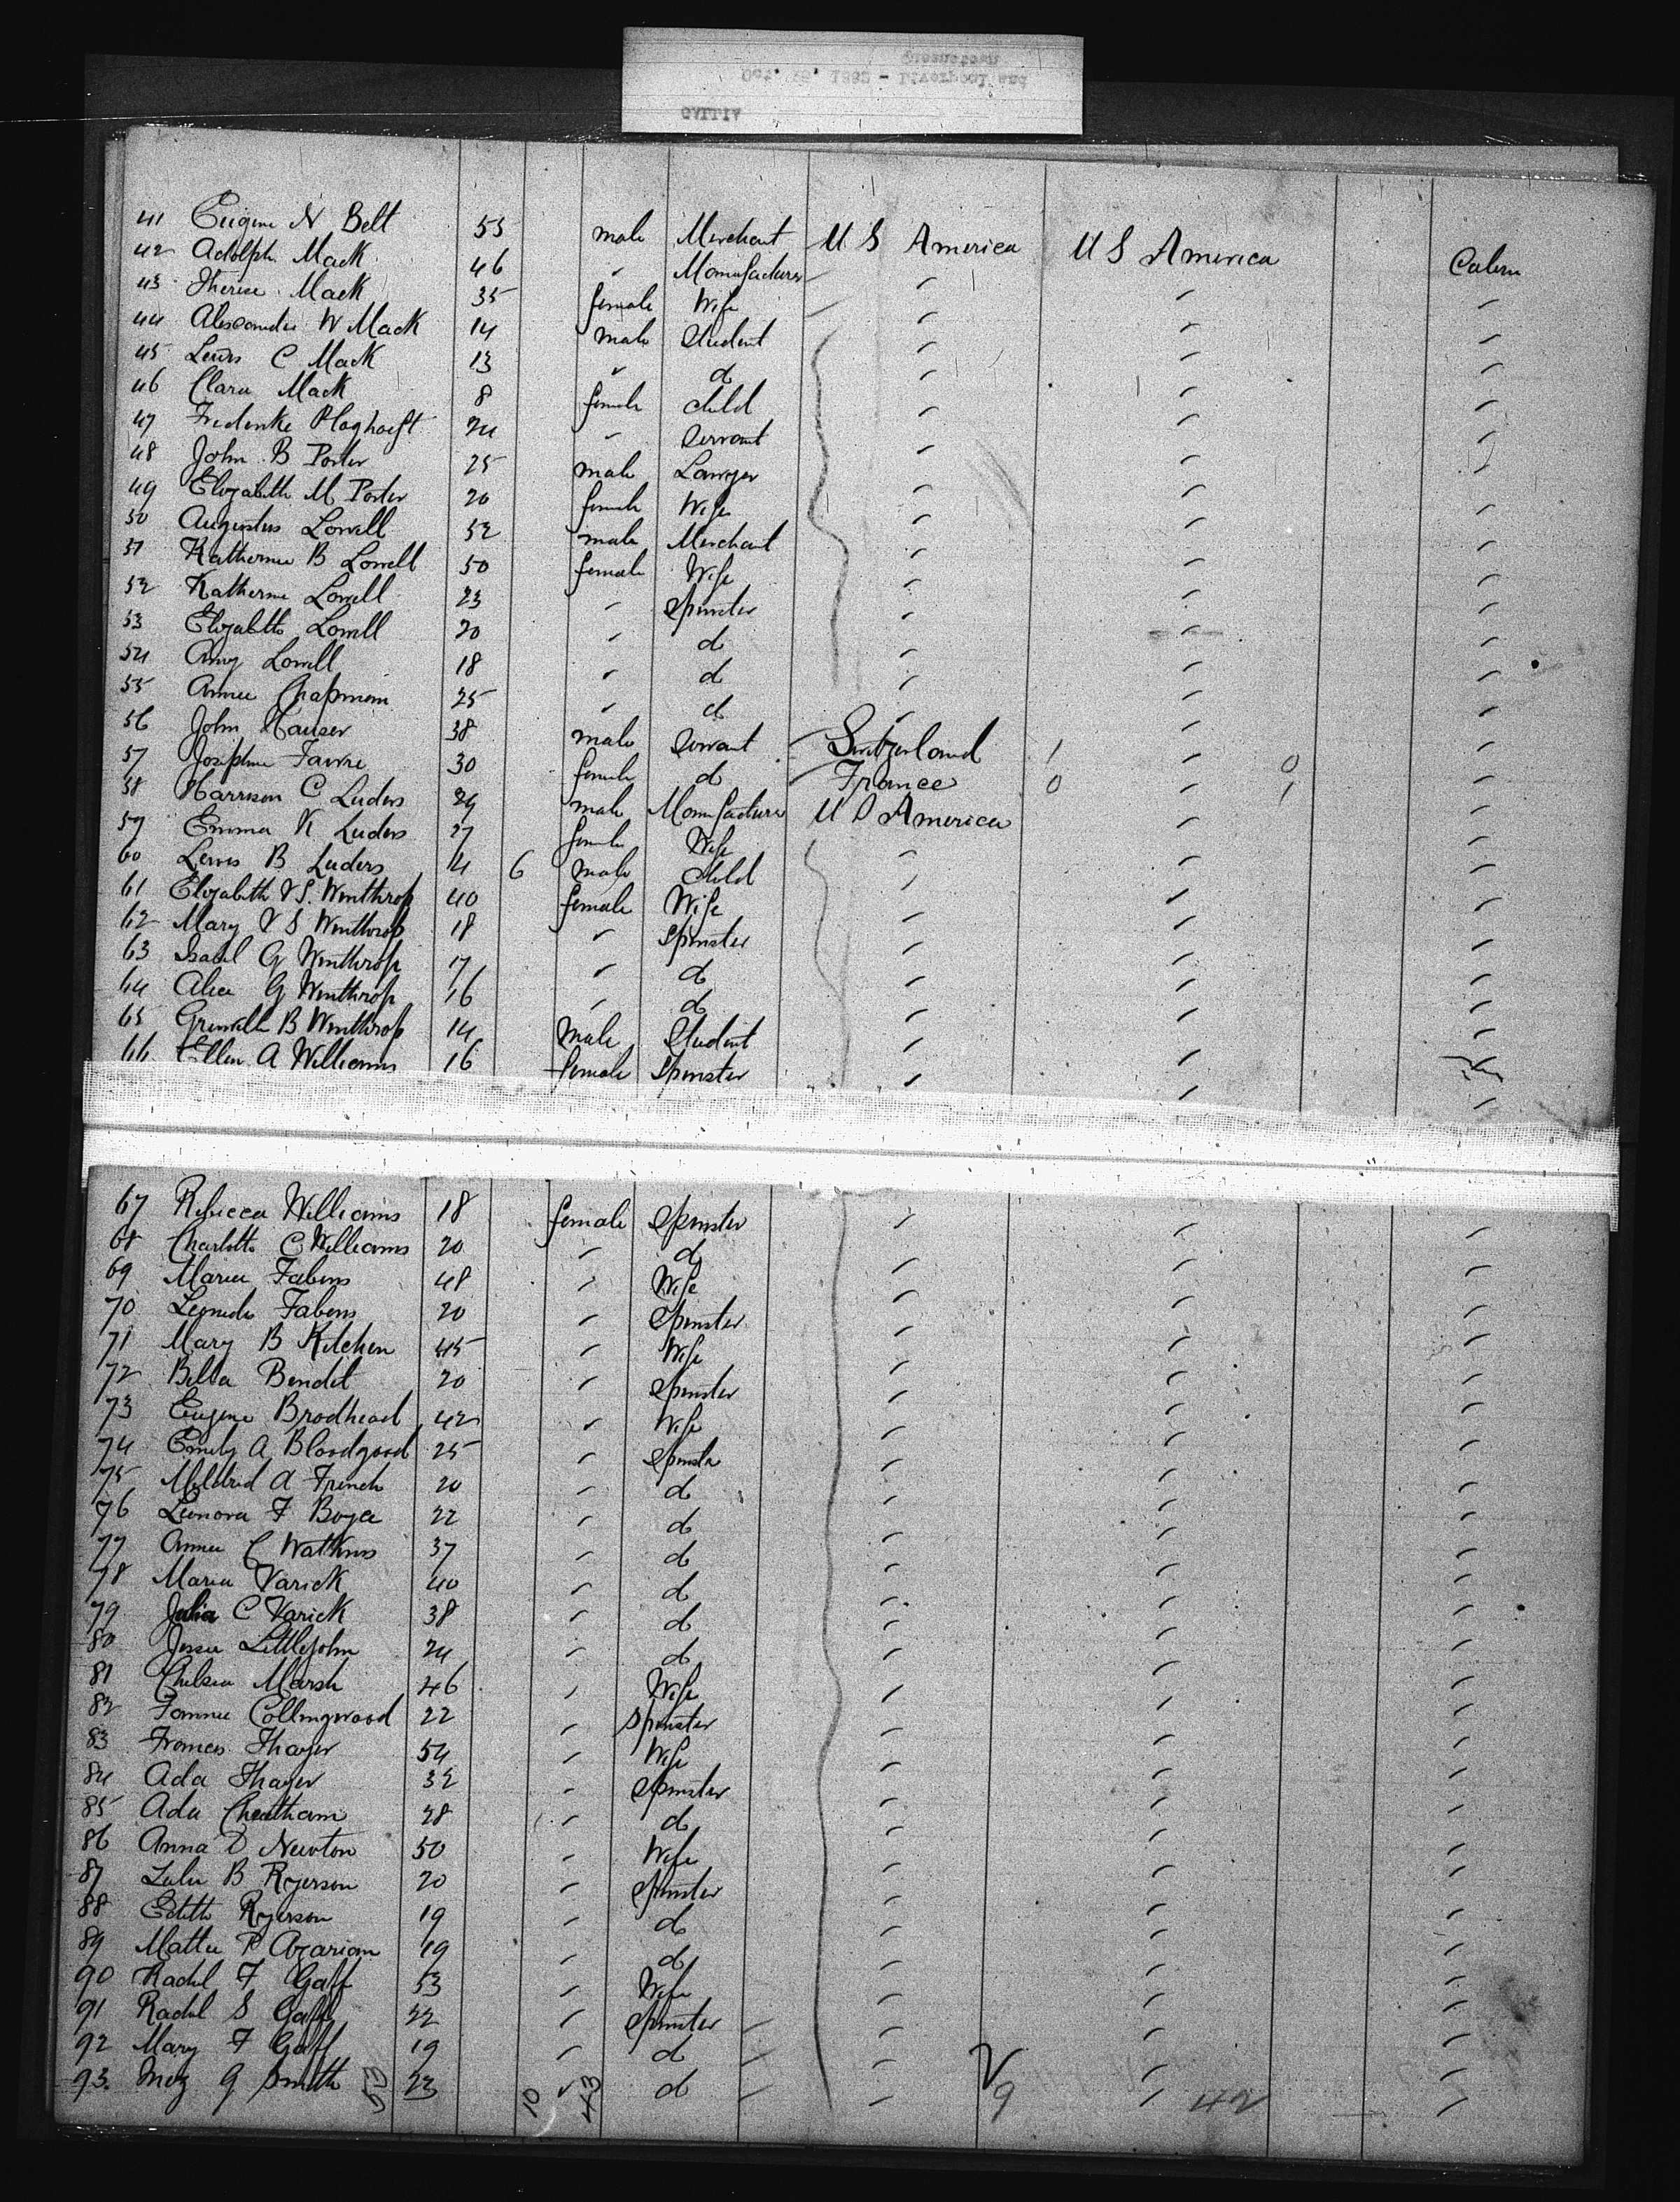 41 Eugene N Belt 53 male Merchant U S America U S America Cabin
42 Adolph Mack 46 " Manufacturer " " "
43 Therese Mack 35 female Wife " " "
44 Alexander W Mack 14 male Student " " "
45 Lewis C Mack 13 " do " " "
46 Clara Mack 8 female child " " "
47 24 " Servant " " "
48 John B Porter 25 male Lawyer " " "
49 Elizabeth M Porter 20 female Wife " " "
50 Augustus Lowell 52 male Merchant " " "
51 Katherine B Lowell 50 female Wife " " "
52 Katherine Lowell 23 " Spinster " " "
53 Elizabeth Lowell 20 " do " " "
54 Amy Lowell 18 " do " " "
55 Annie Chapman 25 " do " " "
56 John Hauser 38 male Servant Switzerland 1 " 0 "
57 Josephine Favre 30 female do France 0 " 1 "
58 Harrison C Luders 29 male Manufacturer U S America " "
59 Emma K Luders 27 female Wife " " "
60 Lewis B Luders 4 6 male child " " "
61 Elizabeth V S. Winthrop 40 female Wife " " "
62 Mary V S Winthrop 18 " Spinster " " "
63 Isabel G Winthrop 17 " do " " "
64 Alice G Winthrop 16 " do " " "
65 B Winthrop 14 male Student " " "
66 Ellen A Williams 16 female Spinster " " "
67 Rebecca Williams 18 female Spinster " " "
68 Charlotte C Williams 20 " do " " "
69 Maria Fabens 48 " Wife " " "
70 Fabens 20 " Spinster " " "
71 Mary B Kitchen 45 " Wife " " "
72 Bella Bendit 20 " Spinster " " "
73 Eugene Brodhead 42 " Wife " " "
74 Emily A Bloodgood 25 " Spinster " " "
75 Mildred A French 20 " do " " "
76 Leonora F Boyce 22 " do " " "
77 Annie C Watkins 37 " do " " "
78 Maria Varick 40 " do " " "
79 Julia C Varick 38 " do " " "
80 Jessie Littlejohn 24 " do " " "
81 Chelsea Marsh 46 " Wife " " "
82 Fannie Collingwood 22 " Spinster " " "
83 Frances Thayer 54 " Wife " " "
84 Ada Thayer 32 " Spinster " " "
85 Ada Cheatham 28 " do " " "
86 Anna D Newton 50 " Wife " " "
87 Lulu B Ryerson 20 " Spinster " " "
88 Edith Ryerson 19 " do " " "
89 Mattie P Azarian 19 " do " " "
90 Rachel F Gaff 53 " Wife " " "
91 Rachel S Gaff 22 " Spinster " " "
92 Mary F Gaff 19 " do " " "
93. Inez G Smith 53 23 10 " 43 do " 9 " 42 "